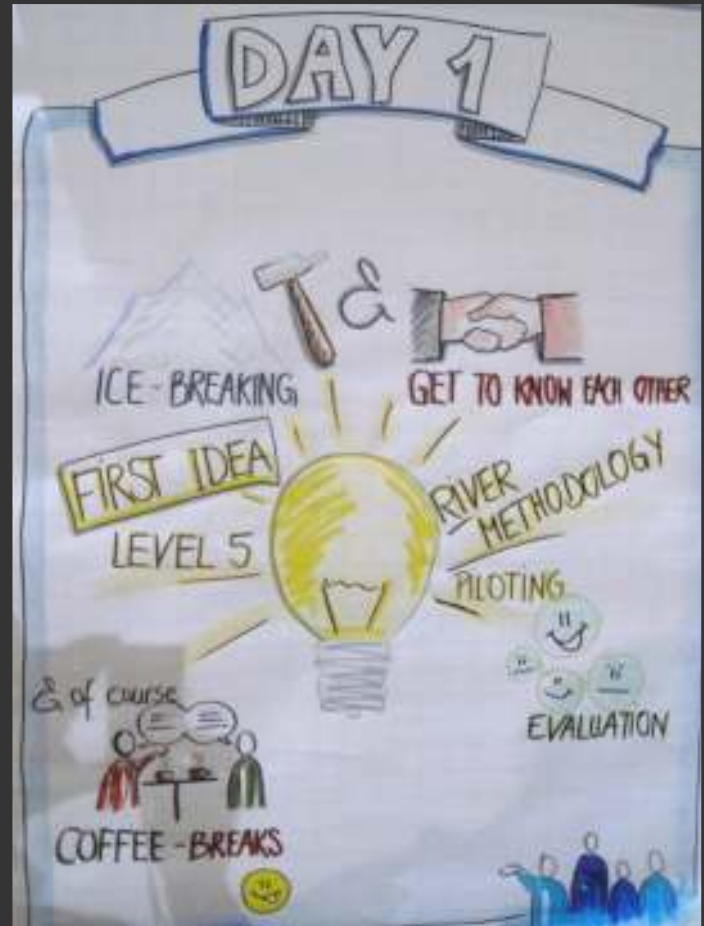 DAY 1
&
ICE-BREAKING
GET TO KNOW EACH OTHER
FIRST IDEA
LEVEL 5
RIVER
METHODOLOGY
PILOTING
EVALUATION
& of course
COFFEE-BREAKS